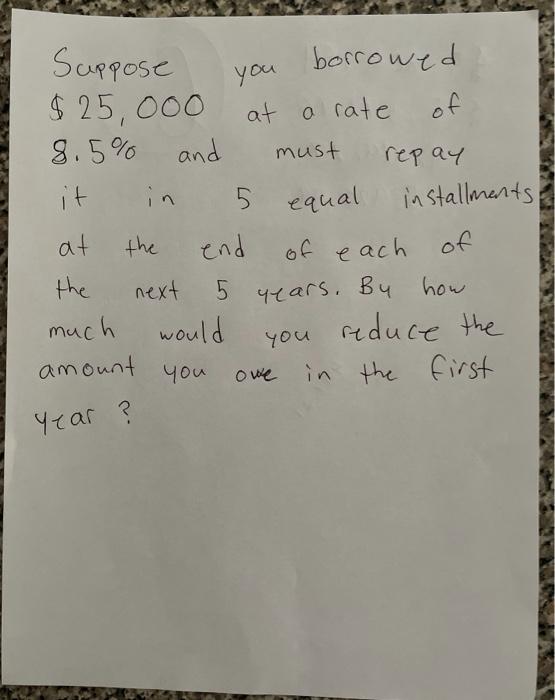 Suppose you borrowed
$25,000 at a rate of
8.5% and must repay
it in 5 equal installments
at the end of each of
the next 5 years. By how
much would you reduce the
amount you owe in the first
year?